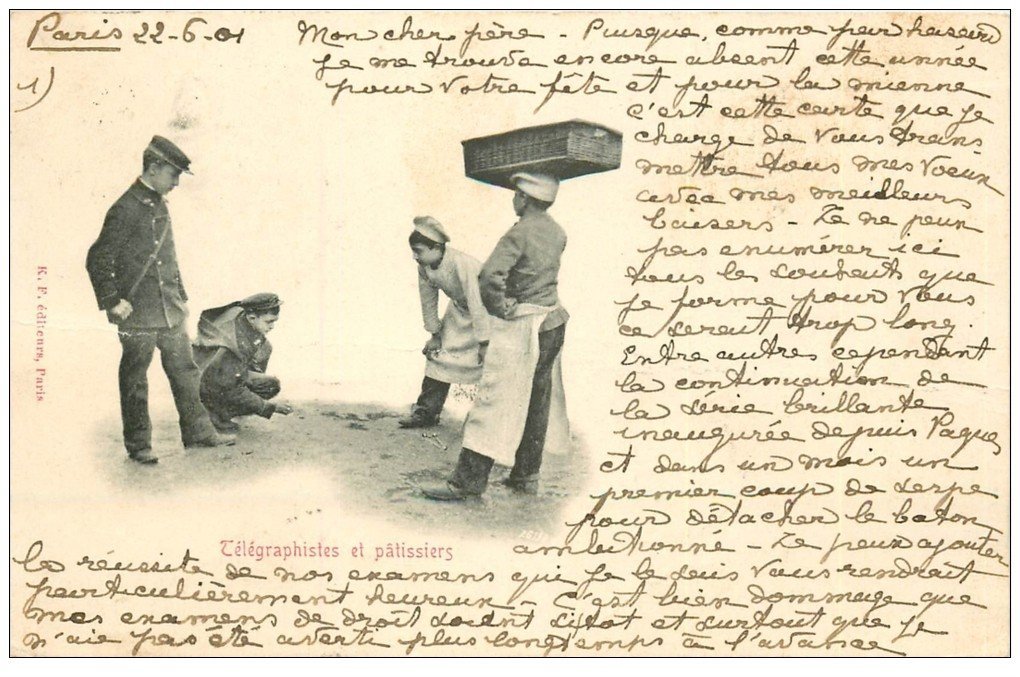 Paris 22-6-01
1)
Mon cher père - Puisque, comme par hasard
je me trouve encore absent cette année
pour votre fête et pour la mienne
c'est cette carte que je
charge de vous trans
mettre tous mes voeux
avec mes meilleurs
baisers - Je ne peux
pas enumérer ici
tous les souhaits que
je forme pour vous
ce serait trop long.
Entre autres cependant
la continuation de
la série brillante
inaugurée depuis Paques
et dans un mois un
premier coup de serpe
pour détacher le baton
ambitionné - Je peux ajouter
la réussite de nos examens qui je le sais vous rendrait
particulièrement heureux - C'est bien dommage que
mes examens de droit soient sitot et surtout que je
n'aie pas été averti plus longtemps à l'avance
K. F. éditeurs, Paris
Télégraphistes et pâtissiers